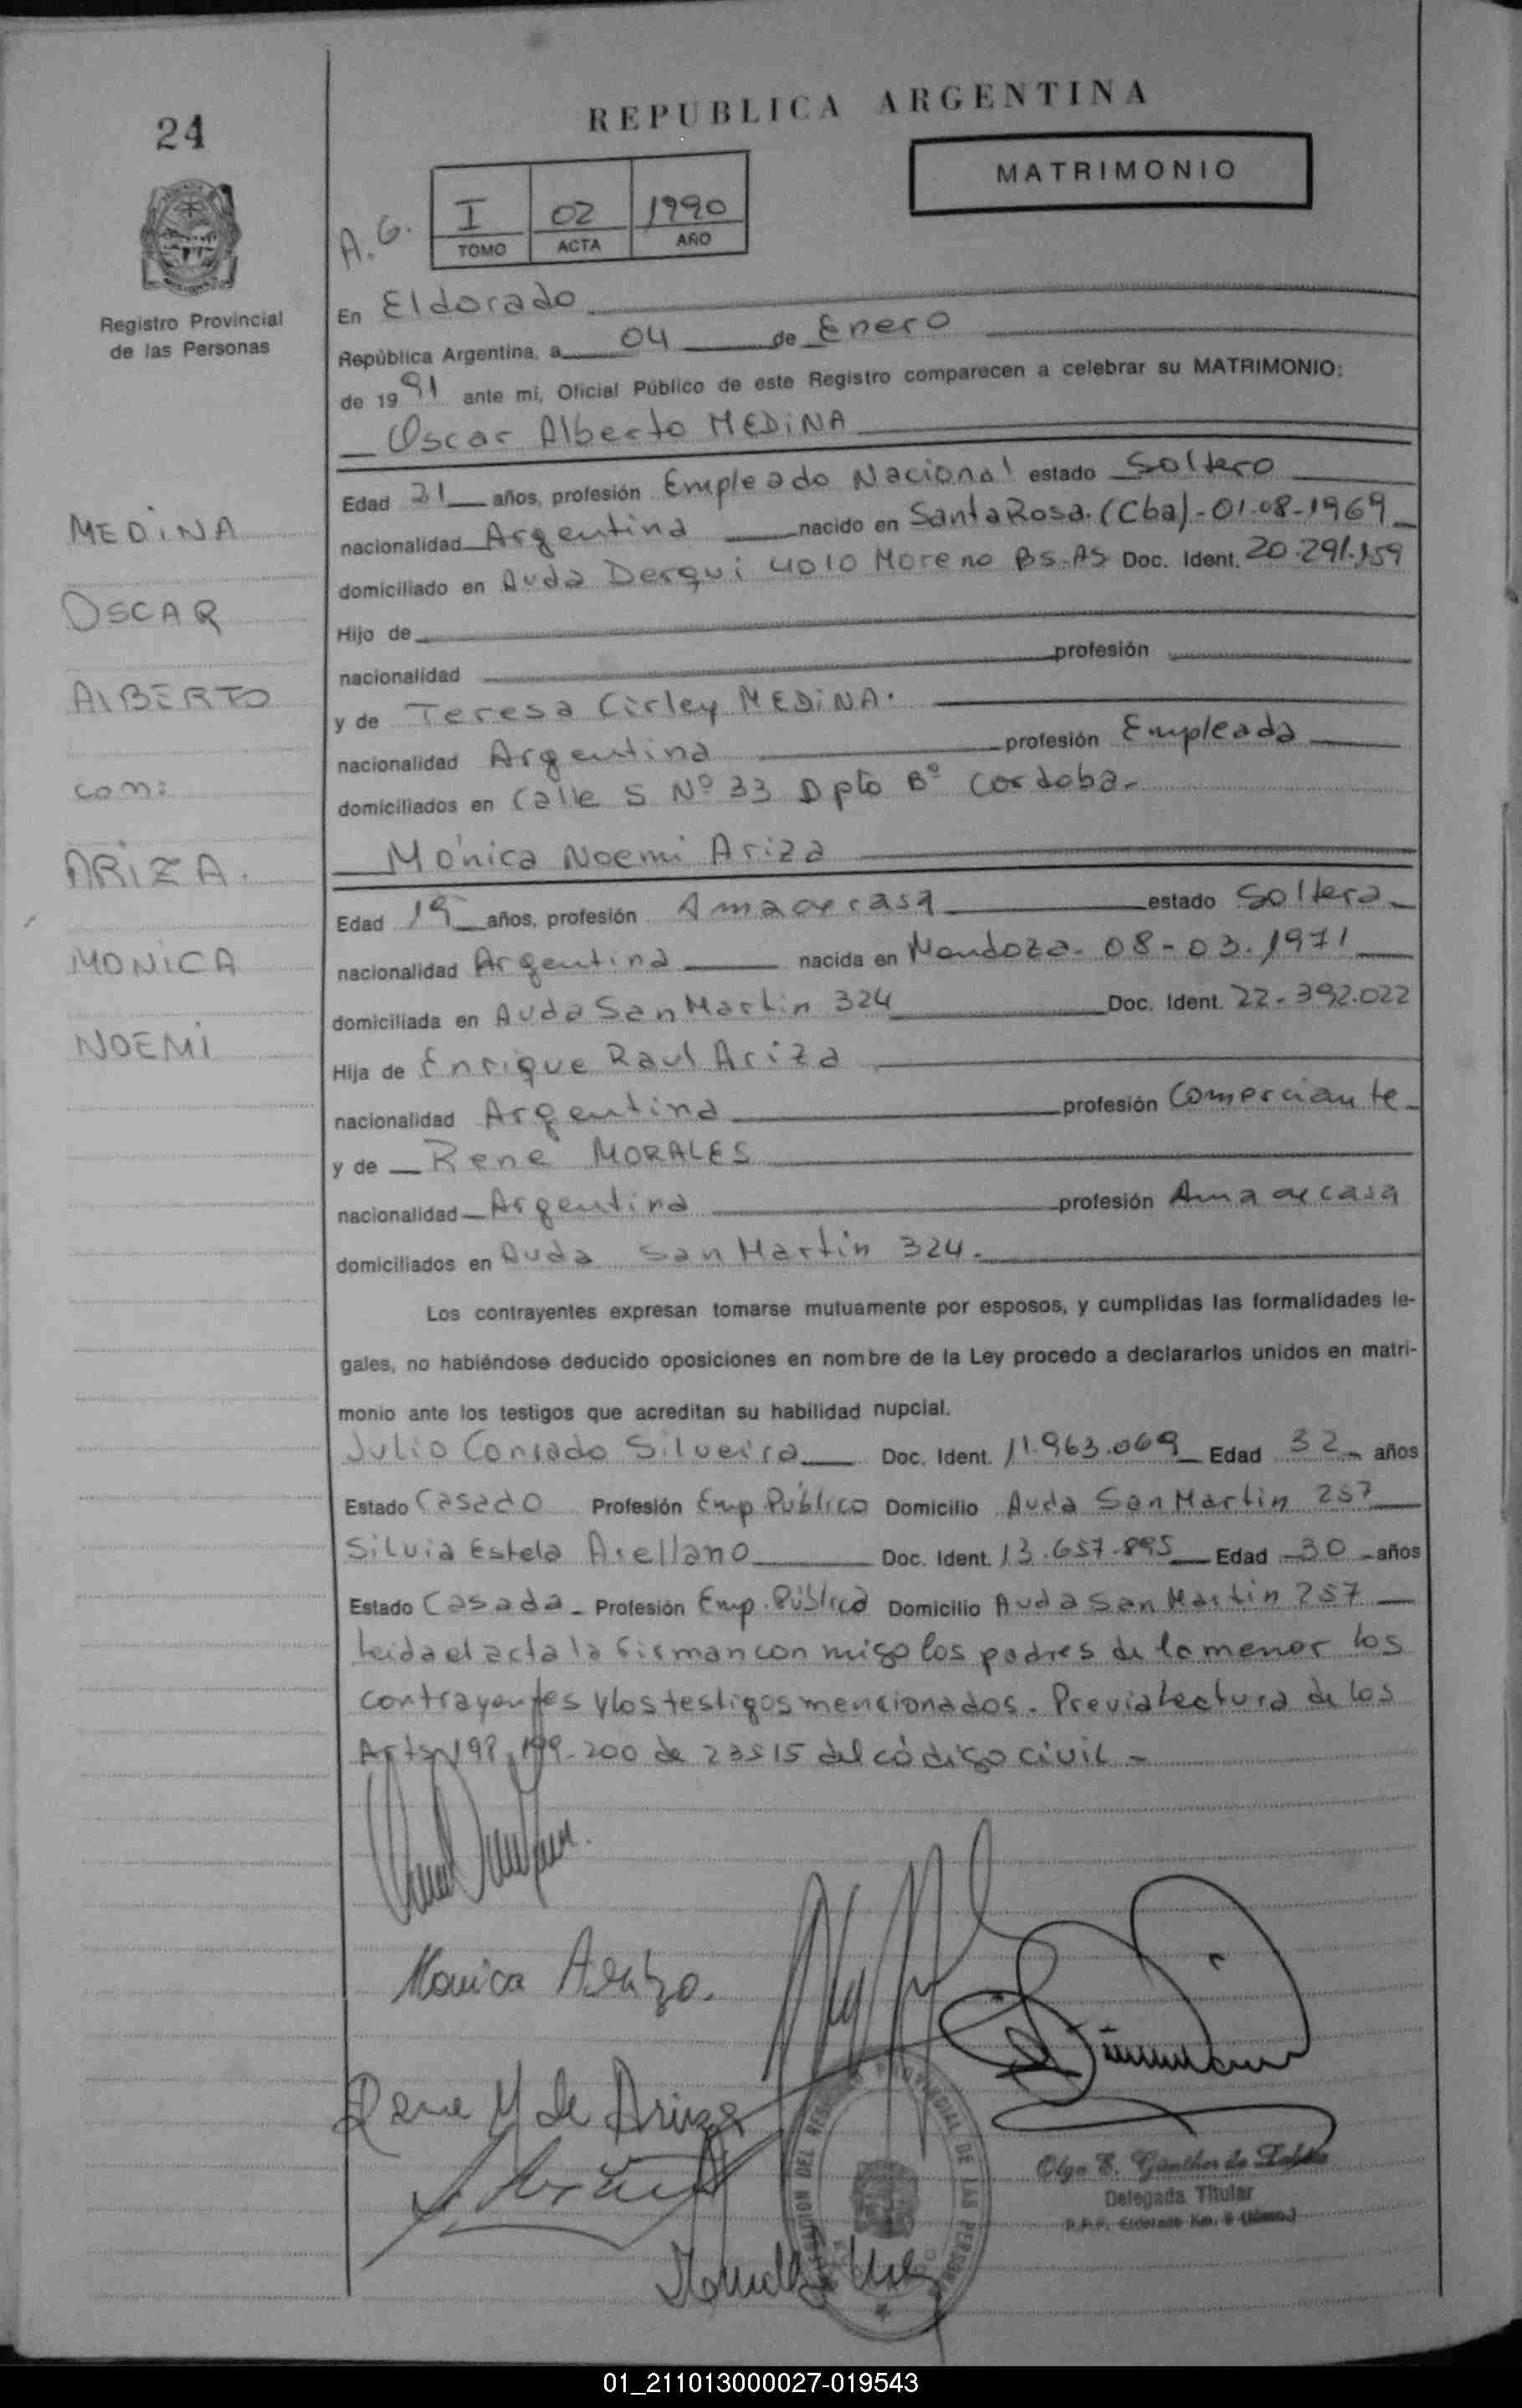 24
Registro Provincial
de las Personas
REPUBLICA ARGENTINA
MATRIMONIO
A.G.
I 02 1990
TOMO ACTA AÑO
En Eldorado
República Argentina, a 04 de Enero
de 1991 ante mi, Oficial Público de este Registro comparecen a celebrar su MATRIMONIO:
Oscar Alberto MEDINA
Edad 21 años, profesión Empleado Nacional estado Soltero
nacionalidad Argentina nacido en Santa Rosa. (Cba)-01-08-1969
domiciliado en Avda Derqui 4010 Moreno BS-AS Doc. Ident. 20.291.159
Hijo de
nacionalidad profesión
y de Teresa Cirley MEDINA.
nacionalidad Argentina profesión Empleada
domiciliados en Calle 5 Nº 33 Dpto Bº Cordoba-
Mónica Noemi Ariza
Edad 19 años, profesión Ama de casa estado Soltera
nacionalidad Argentina nacida en Mendoza- 08-03-1971
domiciliada en Avda San Martin 324 Doc. Ident. 22-392.022
Hija de Enrique Raul Ariza
nacionalidad Argentina profesión Comerciante
y de Rene MORALES
nacionalidad Argentina profesión Ama de casa
domiciliados en Avda San Martin 324.
MEDINA
OSCAR
ALBERTO
con:
ARIZA.
MONICA
NOEMI
Los contrayentes expresan tomarse mutuamente por esposos, y cumplidas las formalidades le-
gales, no habiéndose deducido oposiciones en nombre de la Ley procedo a declararlos unidos en matri-
monio ante los testigos que acreditan su habilidad nupcial.
Julio Conrado Silveira Doc. Ident. 11.963.069 Edad 32 años
Estado Casado Profesión Emp Público Domicilio Avda San Martin 257
Silvia Estela Arellano Doc. Ident. 13.657.895 Edad 30 años
Estado Casada - Profesión Emp. Pública Domicilio Avda San Martin 257
Leida el acta la firman con migo los padres de la menor los
contrayentes y los testigos mencionados. Previa Lectura de los
Arts 198, 199-200 de 23515 del código civil -
Monica Ariza.
Rene M de Ariza
Olga E. Günther de
Delegada Titular
R.P.P. Eldorado Km. 9 (Mnes.)
DEL REGISTRO PROVINCIAL DE LAS PERSONAS
01_211013000027-019543